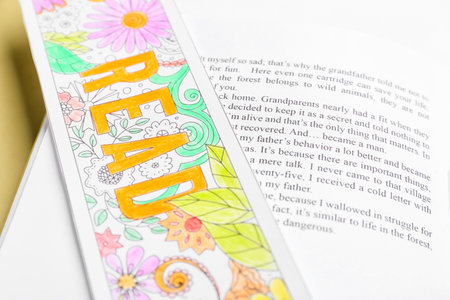 READ
t myself so sad; that's why the grandfather told me not to
for fun. Here even one cartridge can save your life,
the forest belongs to wild animals, they are not
of you.
ck home. Grandparents nearly had a fit when they
decided to keep it as a secret and told nothing to
I'm alive and that's the only thing that matters. In
st recovered. And... became a man.
my father's behavior a lot better and became
as. It's because there are important things,
a mere talk. I never came to that village
wenty-five, I received a cold letter with
my father.
e, because I wallowed in struggle for
fact, it's similar to life in the forest,
dangerous.